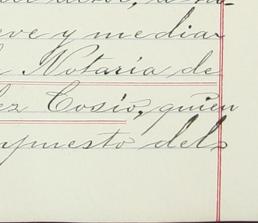 eve y media
Notaría de
ez Cosío, quien
puesto del